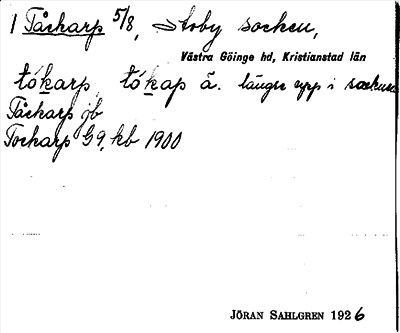 1 Tåckarp 5/8, Stoby socken,
Västra Göinge hd, Kristianstad län
tókarp tókap å. längre upp i socknen
Tåckarp jb
Tockarp G9, kb 1900
JÖRAN SAHLGREN 1926